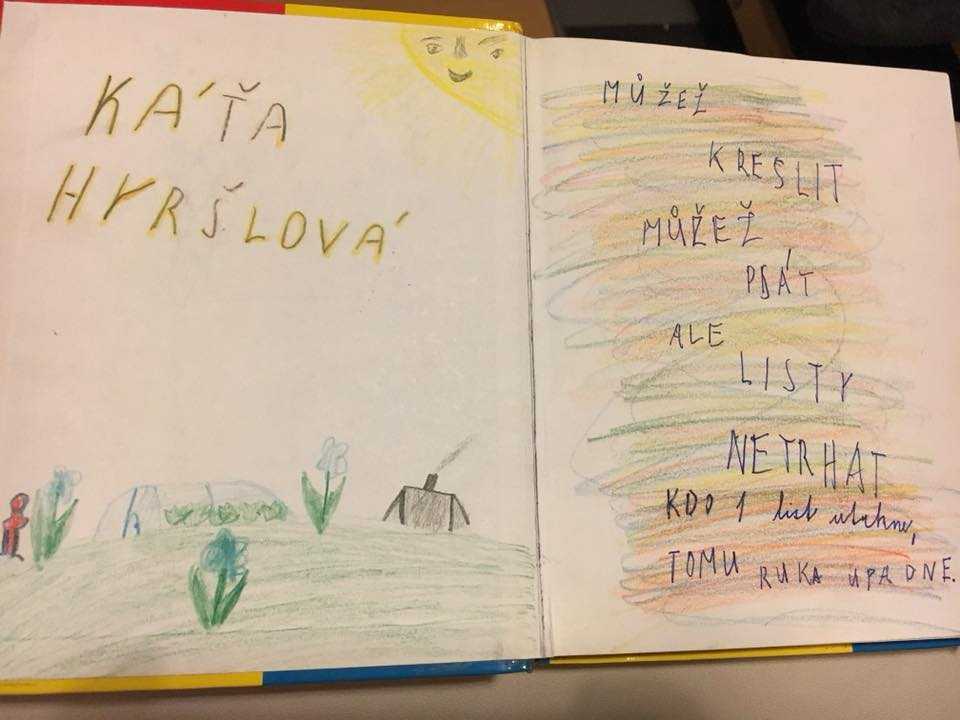 KÁŤA
HYRŠLOVÁ
MŮŽEŽ
KRESLIT
MŮŽEŽ
PSÁT
ALE
LISTY
NETRHAT
KDO 1 list utrhne,
TOMU RUKA UPADNE.